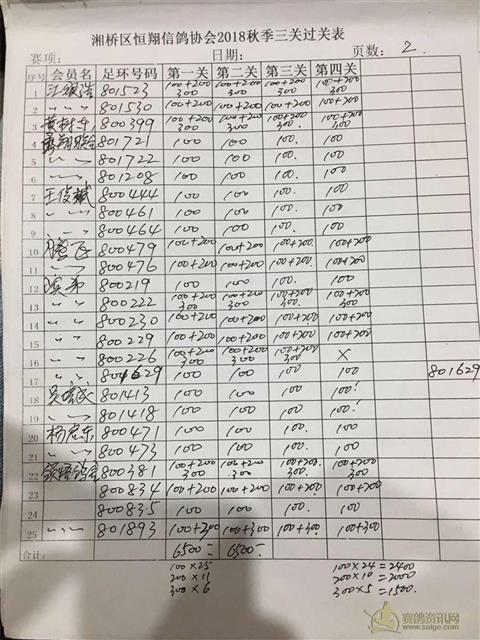 湘桥区恒翔信鸽协会2018秋季三关过关表
赛项: 日期: 页数: 2
序号 会员名 足环号码 第一关 第二关 第三关 第四关
1 汪领浩 801523 100+200 300 100+200 300 100+200 300 100+200 300
2 〃 〃 801530 100+200 100+200 100+200 100+200
3 黄树东 800399 100+200 300 100+200 300 100+200 300 100+200 300
4 801721 100 100 100. 100
5 〃 〃 801722 100 100 100. 100
6 〃 〃 801208 100 100 100. 100
7 王俊斌 800444 100 100 100. 100
8 〃 〃 800461 100 100 100. 100
9 〃 〃 800464 100 100 100. 100
10 腾飞 800479 100+200 100+200 100+200. 100+200
11 〃 〃 800476 100+200 100+200 100+200. 100+200
12 800219 100 100 100. 100
13 〃 〃 800222 100+200 300 100+200 300 100+200 300 100+200 300
14 〃 〃 800230 100+200 100+200 100+200 100+200
15 〃 〃 800229 100+200 100+200 100+200 100+200
16 〃 〃 800226 100+200 300 100+200 300 100+200 300 ×
17 〃 〃 801629 100 100 100 100 801629
18 801413 100 100 100 100
19 〃 〃 801418 100 100 100 100
20 杨宏东 800471 100 100 100 100
21 〃 〃 800473 100 100 100. 100
22 800381 100+200 300 100+200 300 100+200. 300 100+200 300
23 800834 100+200 100+200 100+200 100+200
24 800835 100 100 100. 100
25 〃 〃 801893 100+300 100+300 100+300. 100+300
合计: 6500 6500
100×25 100×24=2400
200×11 200×10=2000
300×6 300×5=1500.
赛鸽资讯网
www.saige.com